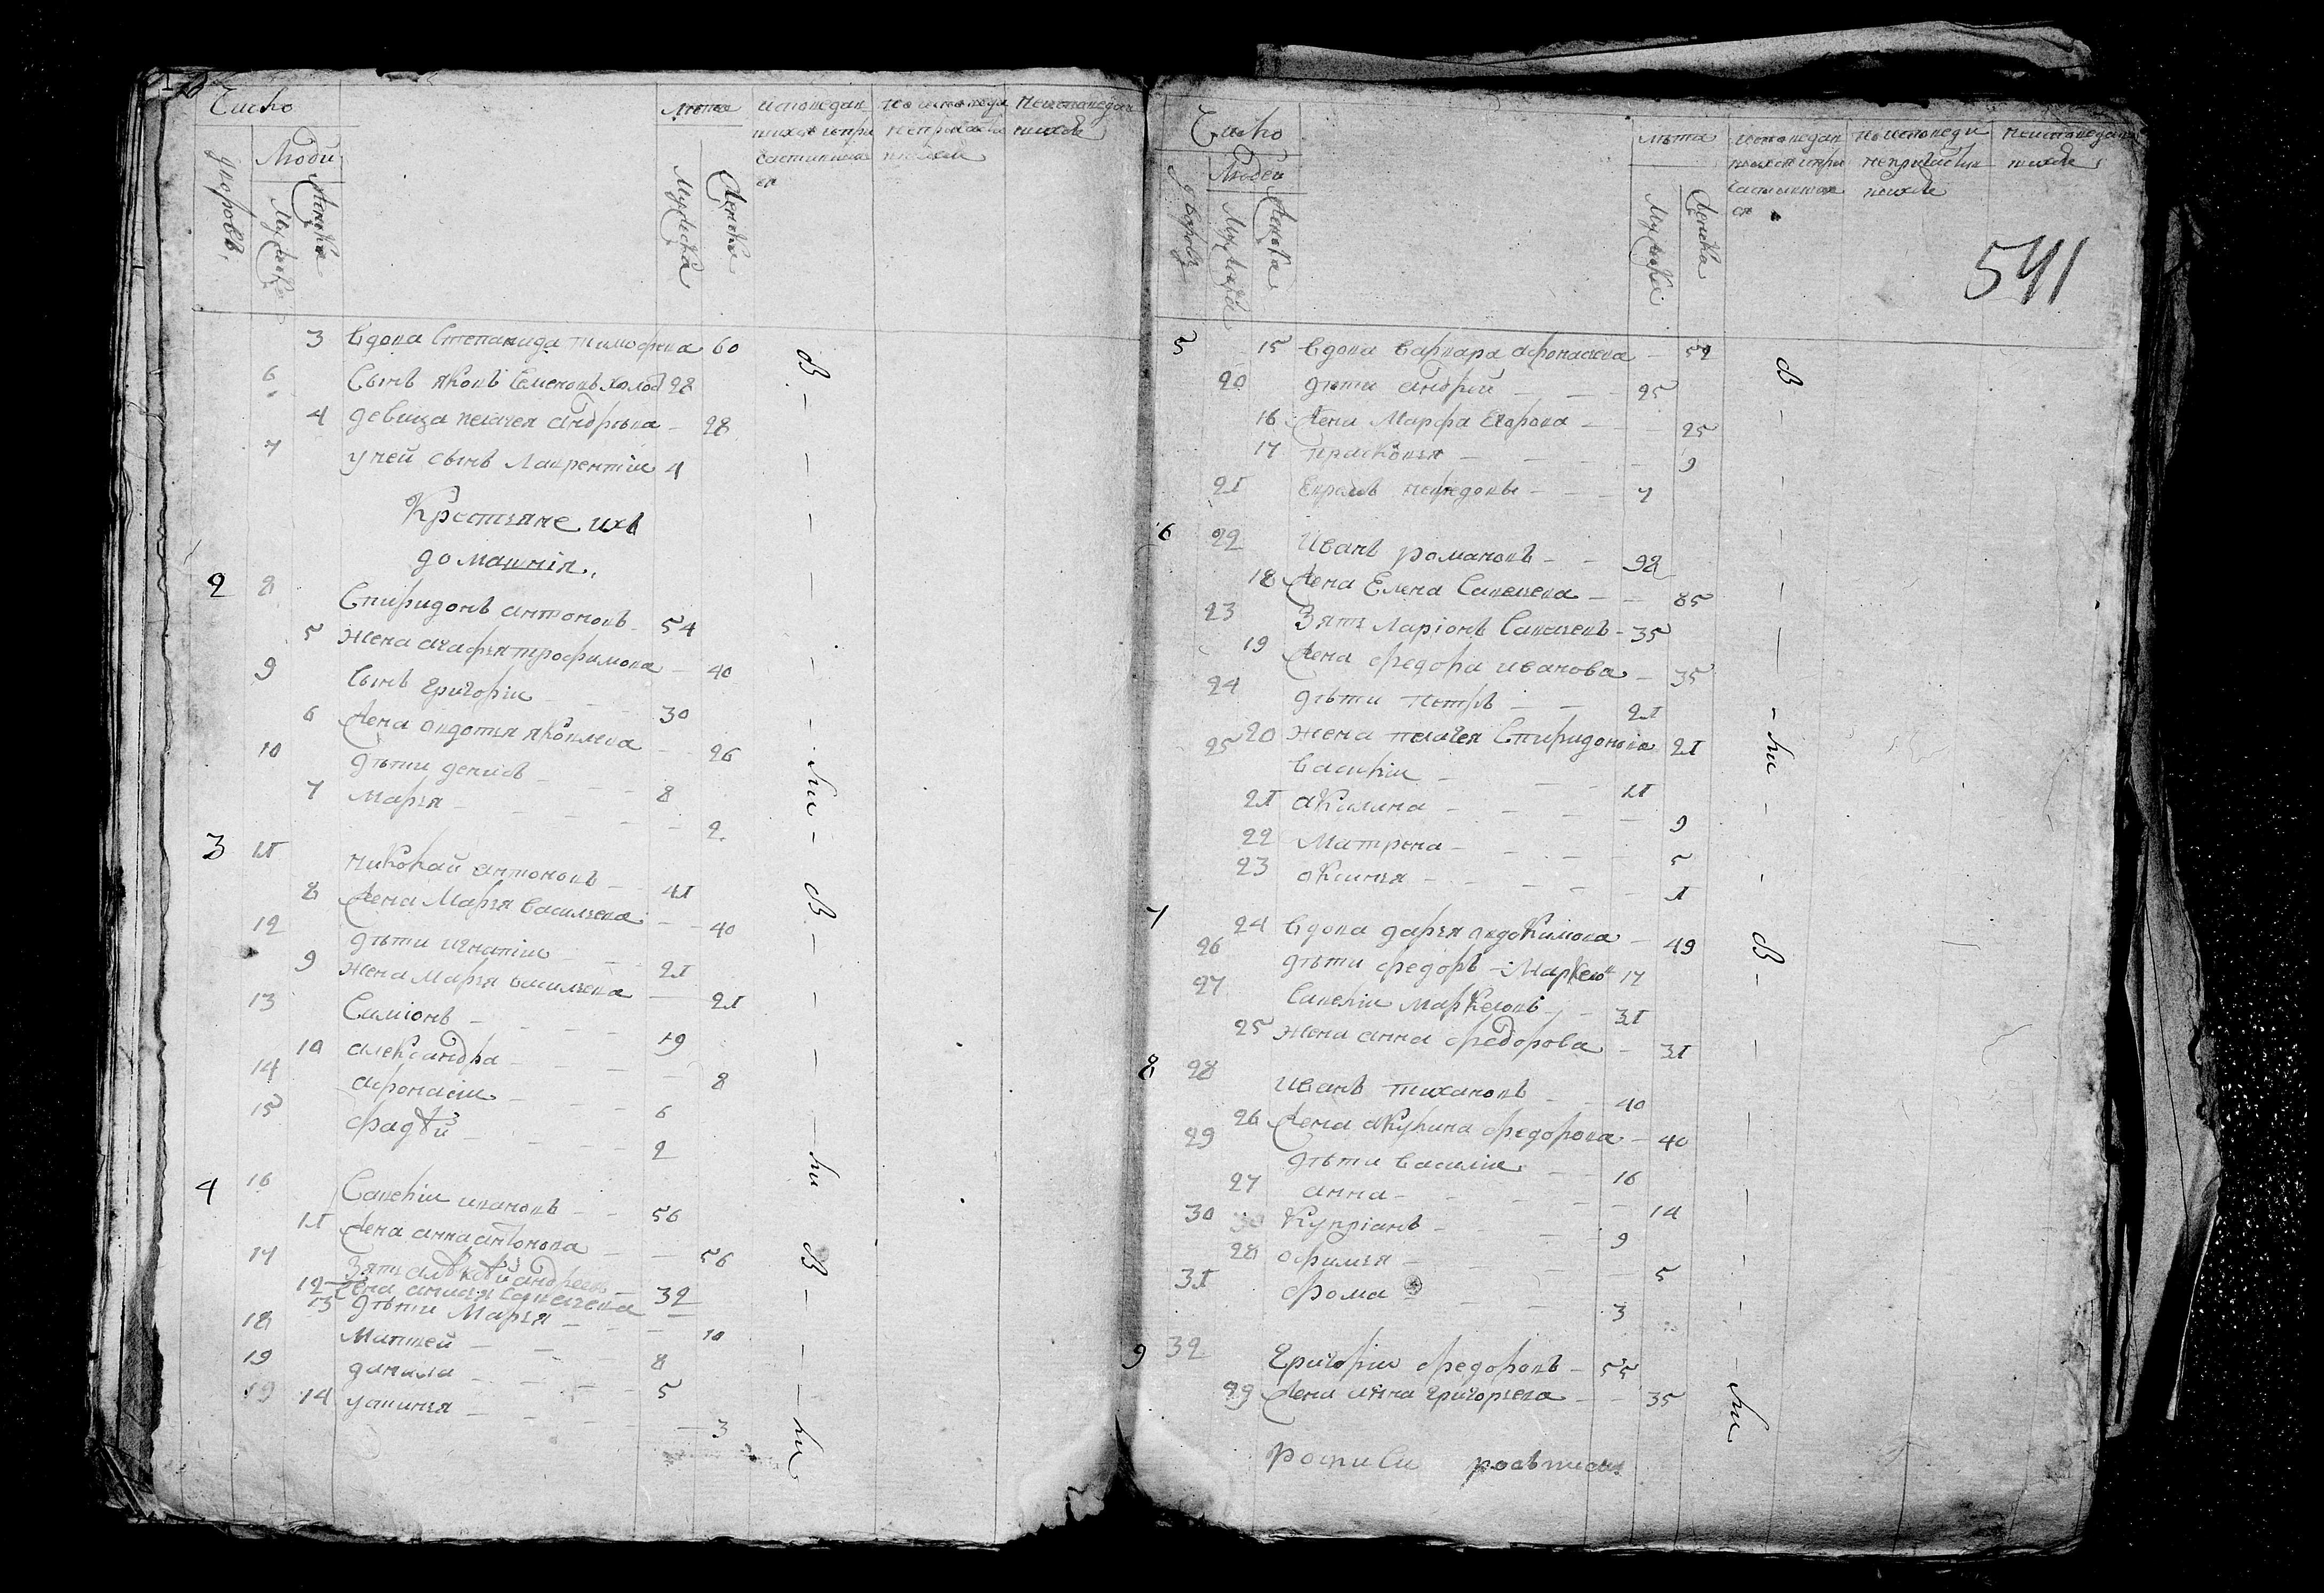 Число
Люди
дворовъ
Мужеска
Женска
Лѣта
Мужеска
Женска
исповедав
шихся и при
частивших
ся
по исповеди
непричасти
вшихся
неисповедав
шихся
3 вдова Степанида тимофѣева 60
6 Сынъ яковъ Семеновъ холост 28
4 девица пелагея андрѣева - 28
7 у ней сынъ Лаврентiи 4
Крестьяне ихъ
домашнiя
2 8 Спиридонъ антоновъ 54
5 жена агафья трофимова - 40
9 Сынъ григорiи - - 30
6 жена овдотья яковлева - 26
10 дѣти денисъ - - - 8
7 Марья - - - - 2
3 11 николай антоновъ - 41
8 жена Марья васильева - 40
12 дѣти игнатiи - - 21
9 жена Марья васильева - 21
13 Симiонъ - - - 19
10 александра - - - 8
14 афонасiи - - - 6
15 фадѣй - - - 2
4 16 Савелiи ивановъ - - 56
11 жена анна антонова - - 56
17 Зять алѣксѣй андреевъ - 32
12 жена Савельева
13 дѣти Марья - - - 10
18 Матвей - - 8
19 данила - - - 5
19 14 устинья - - - - 3
В - ли - В - ли В - ли
Число
Людей
дворовъ
Мужеска
Женска
лѣта
Мужеска
Женска
исповедав
шихся и при
частивших
ся
по исповеди
непричастив
шихся
неисповедав
шихся
541
5 15 вдова варвара афонасьева - 52
20 дѣти андрей - - - 25
16 жена Марфа Егорова - - 25
17 прасковья - - - - 9
21 Ефремъ нефедовы - - - 7
6 22 Иванъ романовъ - - 98
18 жена Елена Савельева - - 85
23 Зять Ларiонъ Савельевъ - 35
19 жена федора иванова - 35
24 дѣти петръ - - 21
20 жена пелагея Спиридонова 21
25 василiи - - - 11
21 акилина - - - - 9
22 Матрена - - - - 5
23 аксинья - - - - 1
7 24 вдова дарья авдокимова - 49
26 дѣти федоръ - Маркелов 17
27 Савелiи Маркеловъ - - 31
25 жена анна федорова - 31
8 28 иванъ тихановъ - - 40
26 жена акулина федорова - 40
29 дѣти василiи - - 16
27 анна - - - - 14
30 Купрiанъ - - - 9
28 офимья - - - - 5
31 фома - - - 3
9 32 Григорiи федоровъ - 55
29 жена анна григорьева - - 35
В - ли - В - ли
росписи